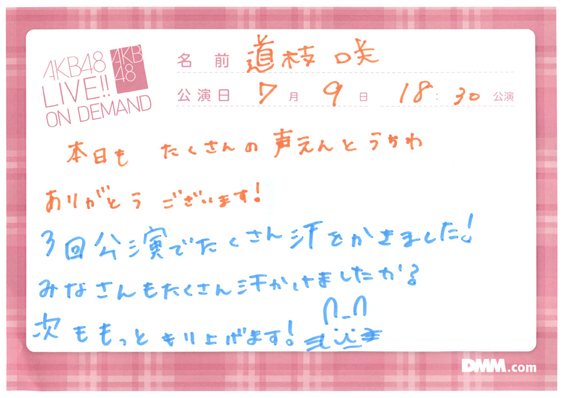 AKB48
LIVE!!
ON DEMAND
AKB
48
名前 道枝 咲
公演日 7月 9日 18:30 公演
本日も たくさんの 声えんとうちわ
ありがとう ございます!
3回公演でたくさん汗をかきました!
みなさんもたくさん汗かけましたか?
次ももっと もり上げます!
DMM.com